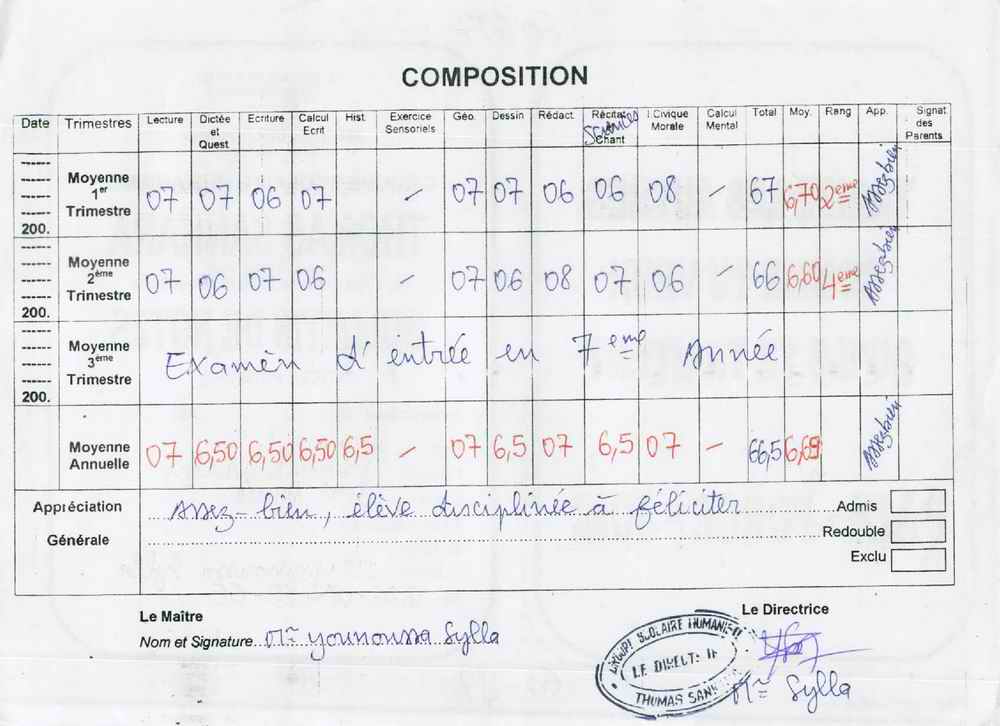 COMPOSITION
Date Trimestres Lecture Dictée et Quest Ecriture Calcul Ecrit Hist. Exercice Sensoriels Géo. Dessin Rédact. Récitat. Sciences Chant I.Civique Morale Calcul Mental Total Moy. Rang App. Signat des Parents
Moyenne 1er Trimestre 200. 07 07 06 07 - 07 07 06 06 08 - 67 6,70 2ème Assez bien
Moyenne 2ème Trimestre 200. 07 06 07 06 - 07 06 08 07 06 - 66 6,60 4ème Assez bien
Moyenne 3ème Trimestre 200. Examen d'entrée en 7ème Année
Moyenne Annuelle 07 6,50 6,50 6,50 6,5 - 07 6,5 07 6,5 07 - 66,5 6,69 Assez bien
Appréciation Générale
Assez-bien, élève disciplinée à féliciter
Admis
Redouble
Exclu
Le Maître
Nom et Signature Mr Younoussa Sylla
Le Directrice
GROUPE SCOLAIRE
LE DIRECT
THOMAS SANK
Mr Sylla